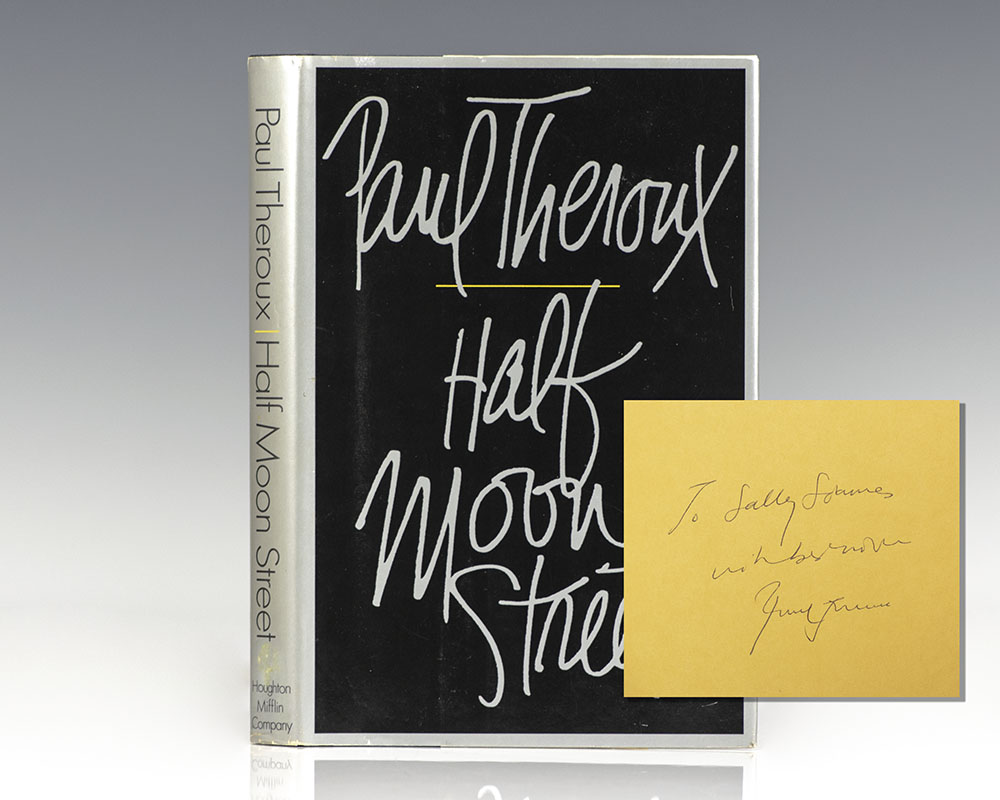 Paul Theroux | Half Moon Street
Houghton
Mifflin
Company
Paul Theroux
Half
Moon
Stree
To Sally Soames
with best wishes
Paul Theroux